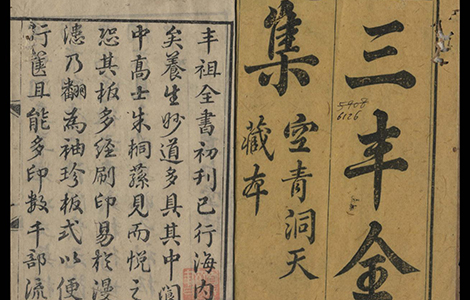 三丰全
集
空青洞天
藏本
5908
6126
丰祖全書初刊已行海内
矣養生妙道多具其中洞
中高士朱桐蓀見而悅之
恐其板多經刷印易於漫
漶乃翻為袖珍板式以便
行匧且能多印數千部流